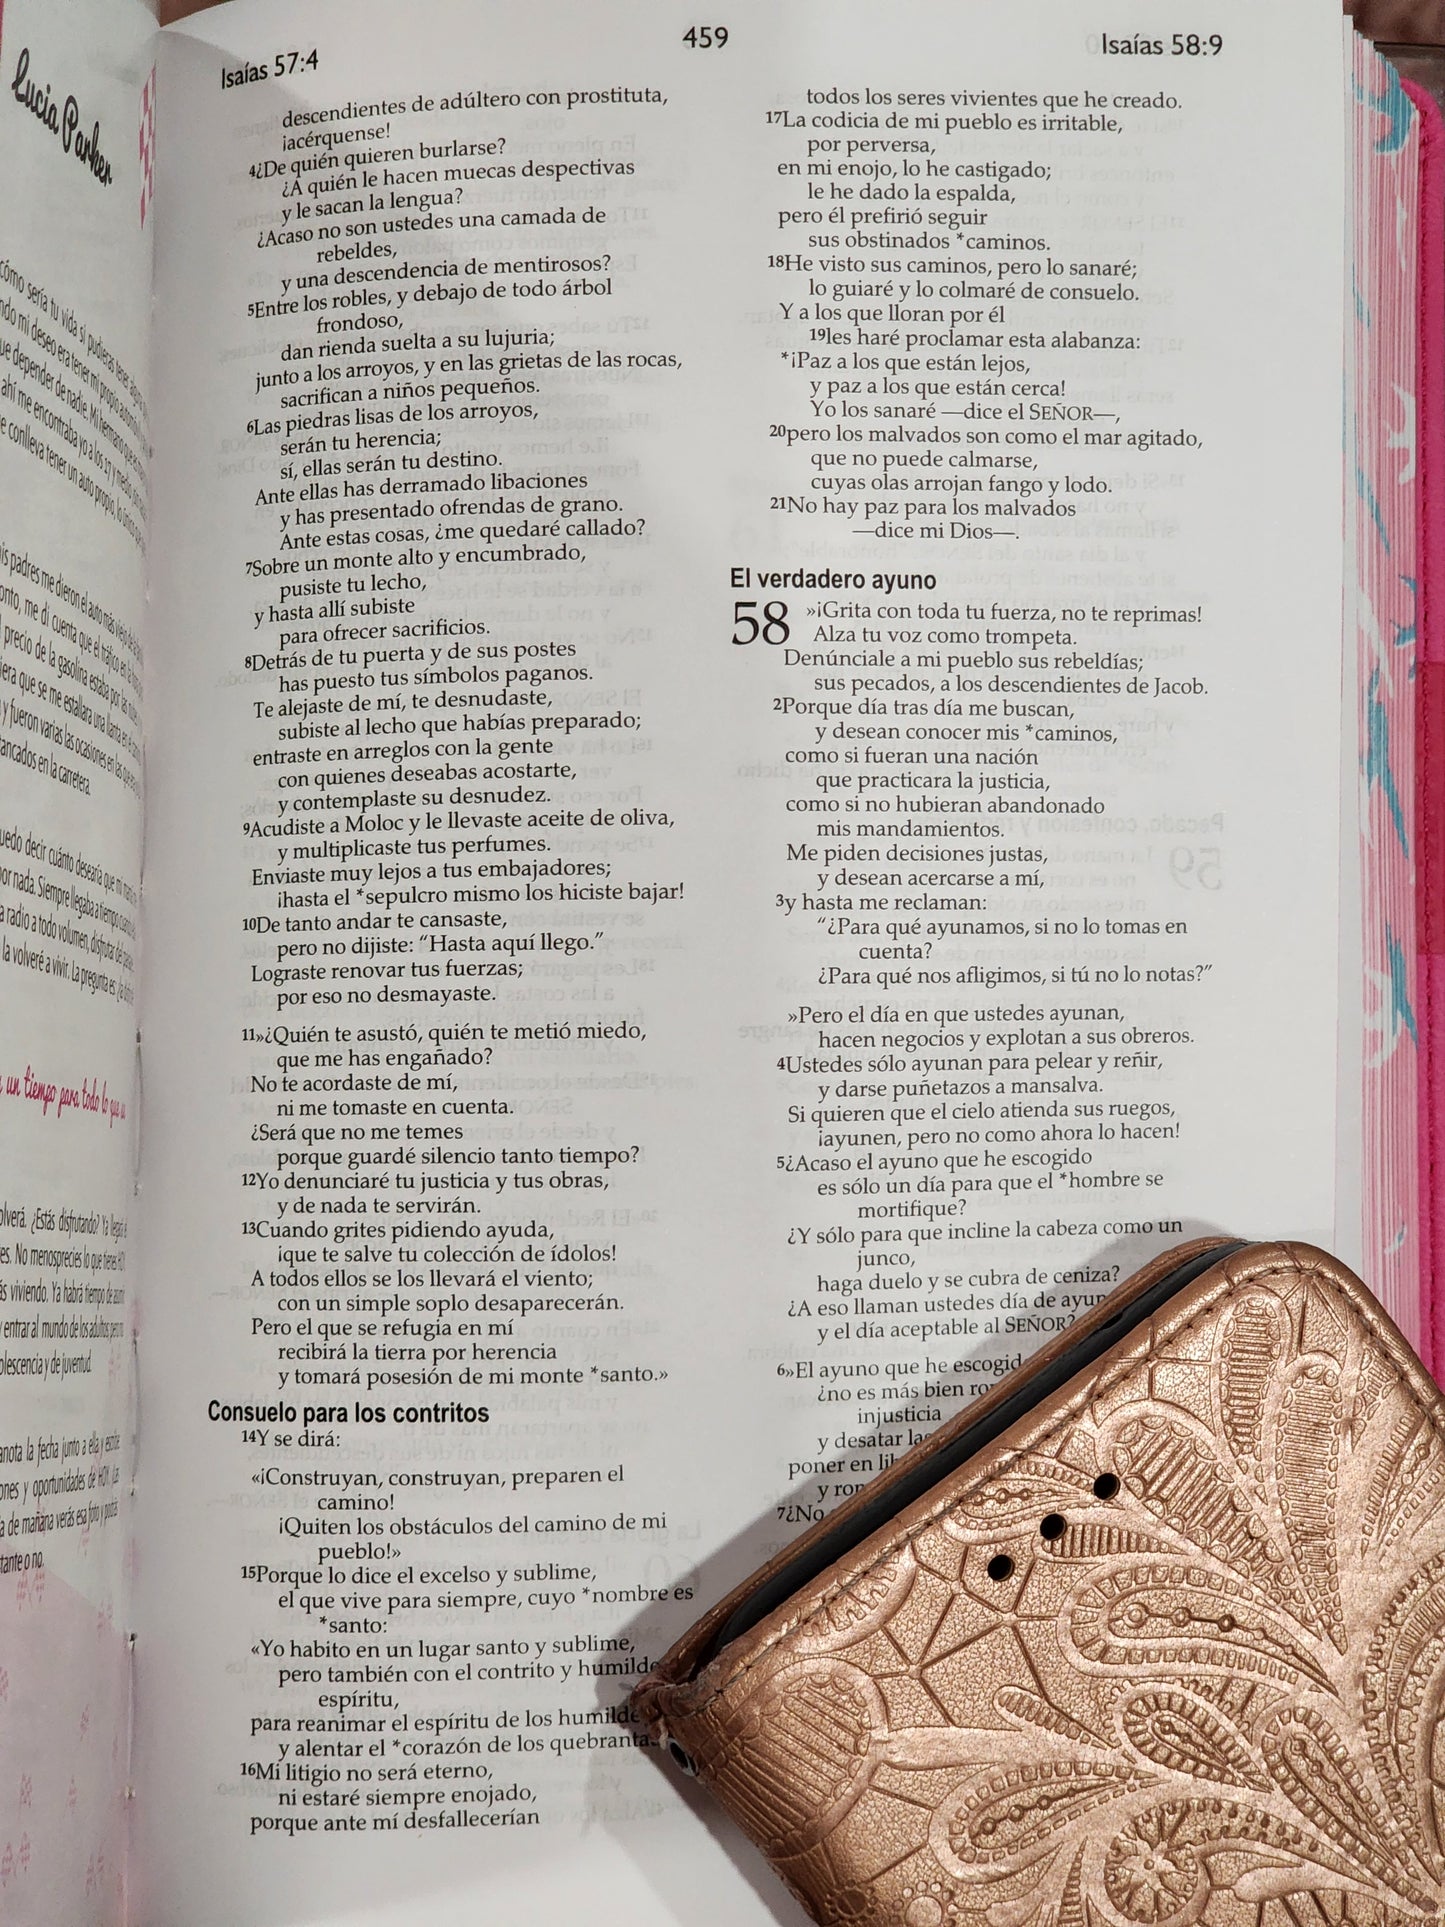 Lucía Parker
cómo sería tu vida si pudieras tener
mi deseo era tener mi propio
depender de nadie. Mi hermano que
ahí me encontraba yo a los 17 y medio
conlleva tener un auto propio, lo único
padres me dieron el auto más viejo de la
me di cuenta que el tráfico en la
precio de la gasolina estaba por las
que se me estallara una llanta en el
y fueron varias las ocasiones en las que
en la carretera.
decir cuánto desearía que mi
por nada. Siempre llegaba a tiempo
radio a todo volumen, disfrutar del
la volveré a vivir. La pregunta es
un tiempo para todo lo que
¿Estás disfrutando? Ya llegará
No menosprecies lo que tienes HOY
viviendo. Ya habrá tiempo de
entrar al mundo de los adultos, pero
y de juventud.
anota la fecha junto a ella y escribe
y oportunidades de HOY. Las
de mañana verás esa foto y podrás
o no.
Isaías 57:4
459
Isaías 58:9
descendientes de adúltero con prostituta,
¡acérquense!
4¿De quién quieren burlarse?
¿A quién le hacen muecas despectivas
y le sacan la lengua?
¿Acaso no son ustedes una camada de
rebeldes,
y una descendencia de mentirosos?
5Entre los robles, y debajo de todo árbol
frondoso,
dan rienda suelta a su lujuria;
junto a los arroyos, y en las grietas de las rocas,
sacrifican a niños pequeños.
6Las piedras lisas de los arroyos,
serán tu herencia;
sí, ellas serán tu destino.
Ante ellas has derramado libaciones
y has presentado ofrendas de grano.
Ante estas cosas, ¿me quedaré callado?
7Sobre un monte alto y encumbrado,
pusiste tu lecho,
y hasta allí subiste
para ofrecer sacrificios.
8Detrás de tu puerta y de sus postes
has puesto tus símbolos paganos.
Te alejaste de mí, te desnudaste,
subiste al lecho que habías preparado;
entraste en arreglos con la gente
con quienes deseabas acostarte,
y contemplaste su desnudez.
9Acudiste a Moloc y le llevaste aceite de oliva,
y multiplicaste tus perfumes.
Enviaste muy lejos a tus embajadores;
¡hasta el *sepulcro mismo los hiciste bajar!
10De tanto andar te cansaste,
pero no dijiste: “Hasta aquí llego.”
Lograste renovar tus fuerzas;
por eso no desmayaste.
11»¿Quién te asustó, quién te metió miedo,
que me has engañado?
No te acordaste de mí,
ni me tomaste en cuenta.
¿Será que no me temes
porque guardé silencio tanto tiempo?
12Yo denunciaré tu justicia y tus obras,
y de nada te servirán.
13Cuando grites pidiendo ayuda,
¡que te salve tu colección de ídolos!
A todos ellos se los llevará el viento;
con un simple soplo desaparecerán.
Pero el que se refugia en mí
recibirá la tierra por herencia
y tomará posesión de mi monte *santo.»
Consuelo para los contritos
14Y se dirá:
«¡Construyan, construyan, preparen el
camino!
¡Quiten los obstáculos del camino de mi
pueblo!»
15Porque lo dice el excelso y sublime,
el que vive para siempre, cuyo *nombre es
*santo:
«Yo habito en un lugar santo y sublime,
pero también con el contrito y humilde
espíritu,
para reanimar el espíritu de los humilde
y alentar el *corazón de los quebranta
16Mi litigio no será eterno,
ni estaré siempre enojado,
porque ante mí desfallecerían
todos los seres vivientes que he creado.
17La codicia de mi pueblo es irritable,
por perversa,
en mi enojo, lo he castigado;
le he dado la espalda,
pero él prefirió seguir
sus obstinados *caminos.
18He visto sus caminos, pero lo sanaré;
lo guiaré y lo colmaré de consuelo.
Y a los que lloran por él
19les haré proclamar esta alabanza:
*¡Paz a los que están lejos,
y paz a los que están cerca!
Yo los sanaré —dice el SEÑOR—,
20pero los malvados son como el mar agitado,
que no puede calmarse,
cuyas olas arrojan fango y lodo.
21No hay paz para los malvados
—dice mi Dios—.
El verdadero ayuno
58 »¡Grita con toda tu fuerza, no te reprimas!
Alza tu voz como trompeta.
Denúnciale a mi pueblo sus rebeldías;
sus pecados, a los descendientes de Jacob.
2Porque día tras día me buscan,
y desean conocer mis *caminos,
como si fueran una nación
que practicara la justicia,
como si no hubieran abandonado
mis mandamientos.
Me piden decisiones justas,
y desean acercarse a mí,
3y hasta me reclaman:
“¿Para qué ayunamos, si no lo tomas en
cuenta?
¿Para qué nos afligimos, si tú no lo notas?”
»Pero el día en que ustedes ayunan,
hacen negocios y explotan a sus obreros.
4Ustedes sólo ayunan para pelear y reñir,
y darse puñetazos a mansalva.
Si quieren que el cielo atienda sus ruegos,
¡ayunen, pero no como ahora lo hacen!
5¿Acaso el ayuno que he escogido
es sólo un día para que el *hombre se
mortifique?
¿Y sólo para que incline la cabeza como un
junco,
haga duelo y se cubra de ceniza?
¿A eso llaman ustedes día de ayun
y el día aceptable al SEÑOR?
6»El ayuno que he escogid
¿no es más bien ro
injusticia
y desatar las
poner en li
y ro
7¿No